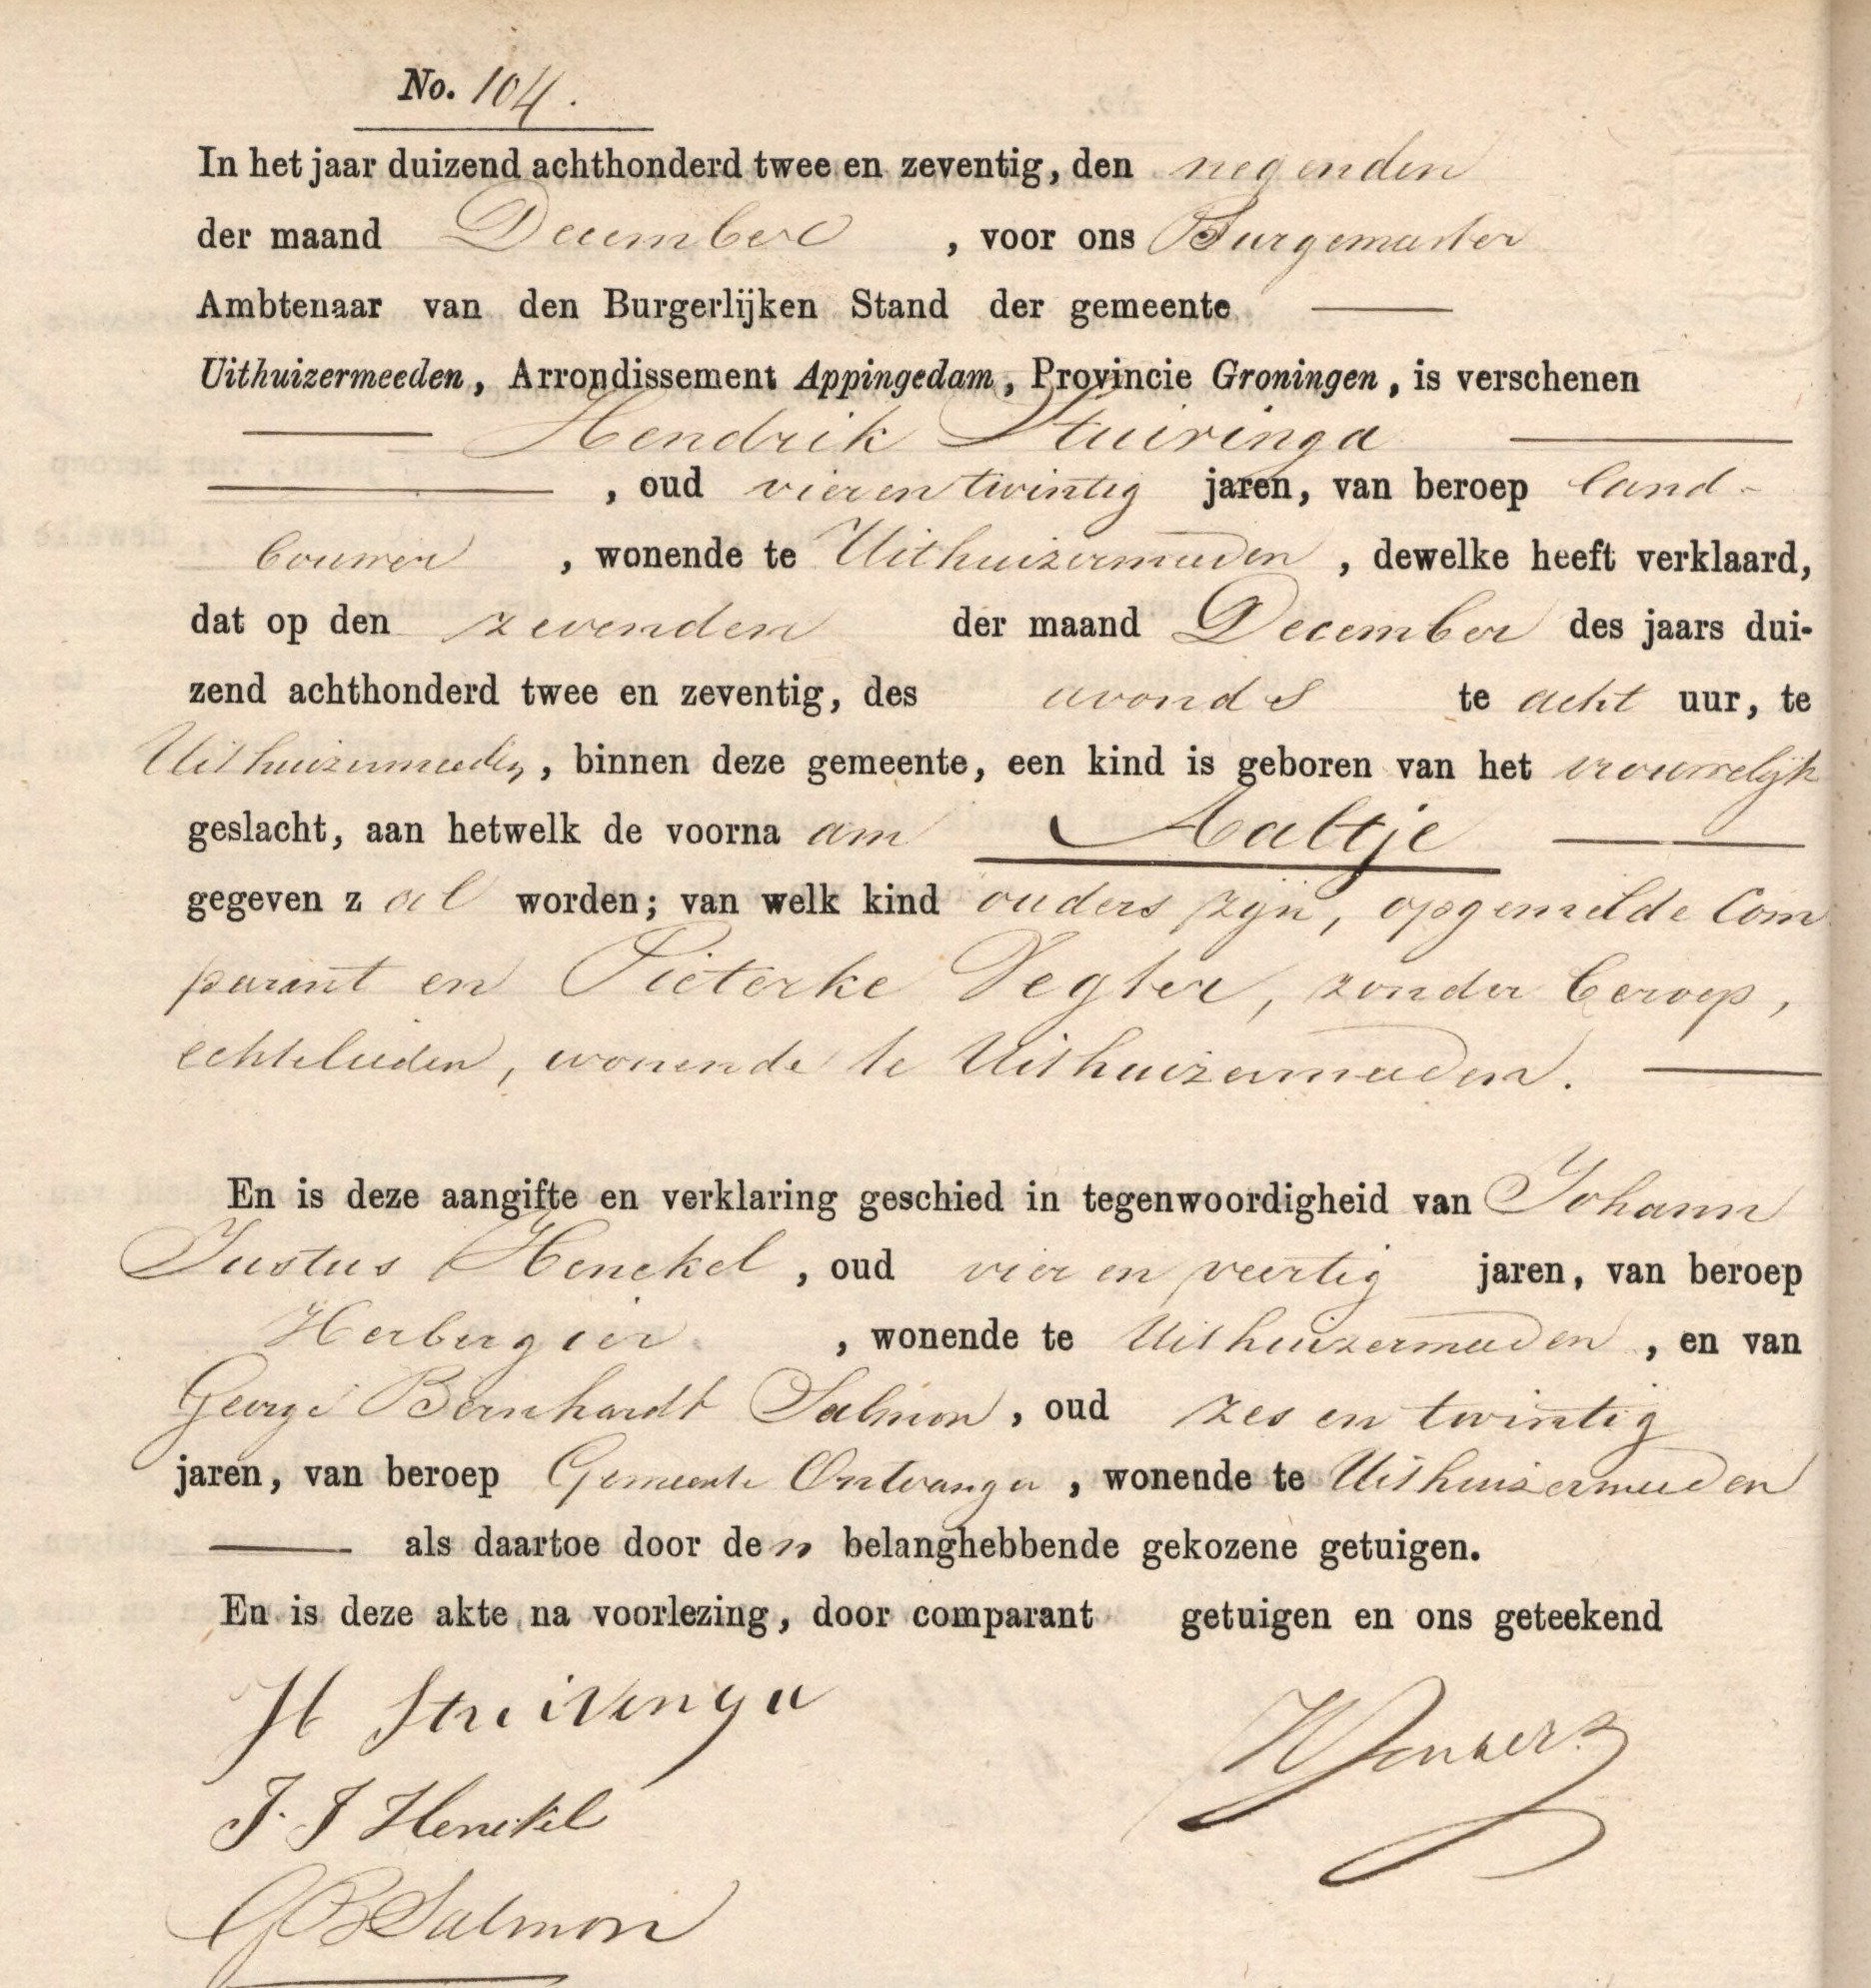 No. 104.
In het jaar duizend achthonderd twee en zeventig, den negenden
der maand December , voor ons Burgemeester
Ambtenaar van den Burgerlijken Stand der gemeente
Uithuizermeeden, Arrondissement Appingedam, Provincie Groningen, is verschenen
Hendrik Stuivinga
, oud vier en twintig jaren, van beroep land-
bouwer , wonende te Uithuizermeeden , dewelke heeft verklaard,
dat op den zevenden der maand December des jaars dui-
zend achthonderd twee en zeventig, des avonds te acht uur, te
Uithuizermeeden, binnen deze gemeente, een kind is geboren van het vrouwelijk
geslacht, aan hetwelk de voorna am Aaltje
gegeven z al worden; van welk kind ouders zijn, opgemelde Com
parant en Pieterke Vegter, zonder beroep,
echtelieden, wonende te Uithuizermeeden.
En is deze aangifte en verklaring geschied in tegenwoordigheid van Johann
Justus Henckel , oud vier en veertig jaren, van beroep
Herbergier , wonende te Uithuizermeeden , en van
George Bernhardt Salmon, oud zes en twintig
jaren, van beroep Gemeente Ontvanger , wonende te Uithuizermeeden
als daartoe door den belanghebbende gekozene getuigen.
En is deze akte na voorlezing, door comparant getuigen en ons geteekend
H Stuivinga
J. J Henckel
GB Salmon